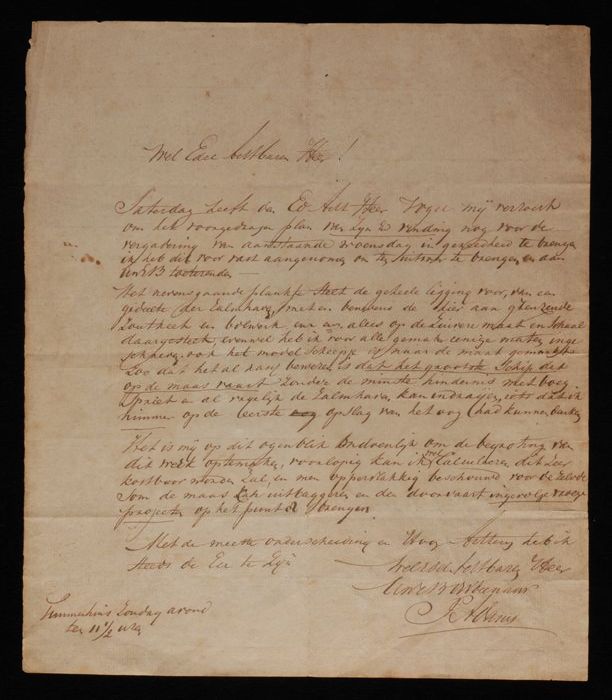 Wel Edel Achtbaren Heer!
Saterdag heeft den Ed Acht Heer Vogel mij versocht
om het voorgedragen plan van Zijn Ed vinding nog voor de
vergadering van aanstaande woensdag in gereedheid te brengen
ik heb dit voor vast aangenomen om ten uitvoer te brengen en aan
UWEB
Het nevensgaande plankje stelt de geheele legging voor, van een
gedeelte der Zalmhaven, met en benevens de aan grenzende
Zoutkeet en bolwerk, alles op de Zuivere maat en Schaal
daargestelt evenwel heb ik voor alle gemak eenige maten inge
schreven, ook het model scheepje is naar de maat gemaakt
Zoo dat het al kan beweren is dat het grootste Schip dat
op de maas vaart Zonder de minste hindernis met boeg
Spriet en al regelijk de Zalmhaven kan indragen, iets dat ik
nimmer op de eerste opslag van het oog had kunnen denken
Het is mij op dit ogenblik ondoenlijk om de begrooting van
dit werk optemaken, voorlopig kan ik wel Calculeren dit zeer
kostbaar worden Zal, en men oppervlakkig beschouwd voor de Zelvde
Som de maas uitbaggeren en den doorvaart ingevolge vroeger
project op het punt brengen
Met de meeste onderscheiding en Hoog Achting heb ik
steeds de Eer te Zijn
Weledel Achtbaren Heer
UWEB Dienaar
Timmerhuis Zondag avond
ten 11 1/2 uren